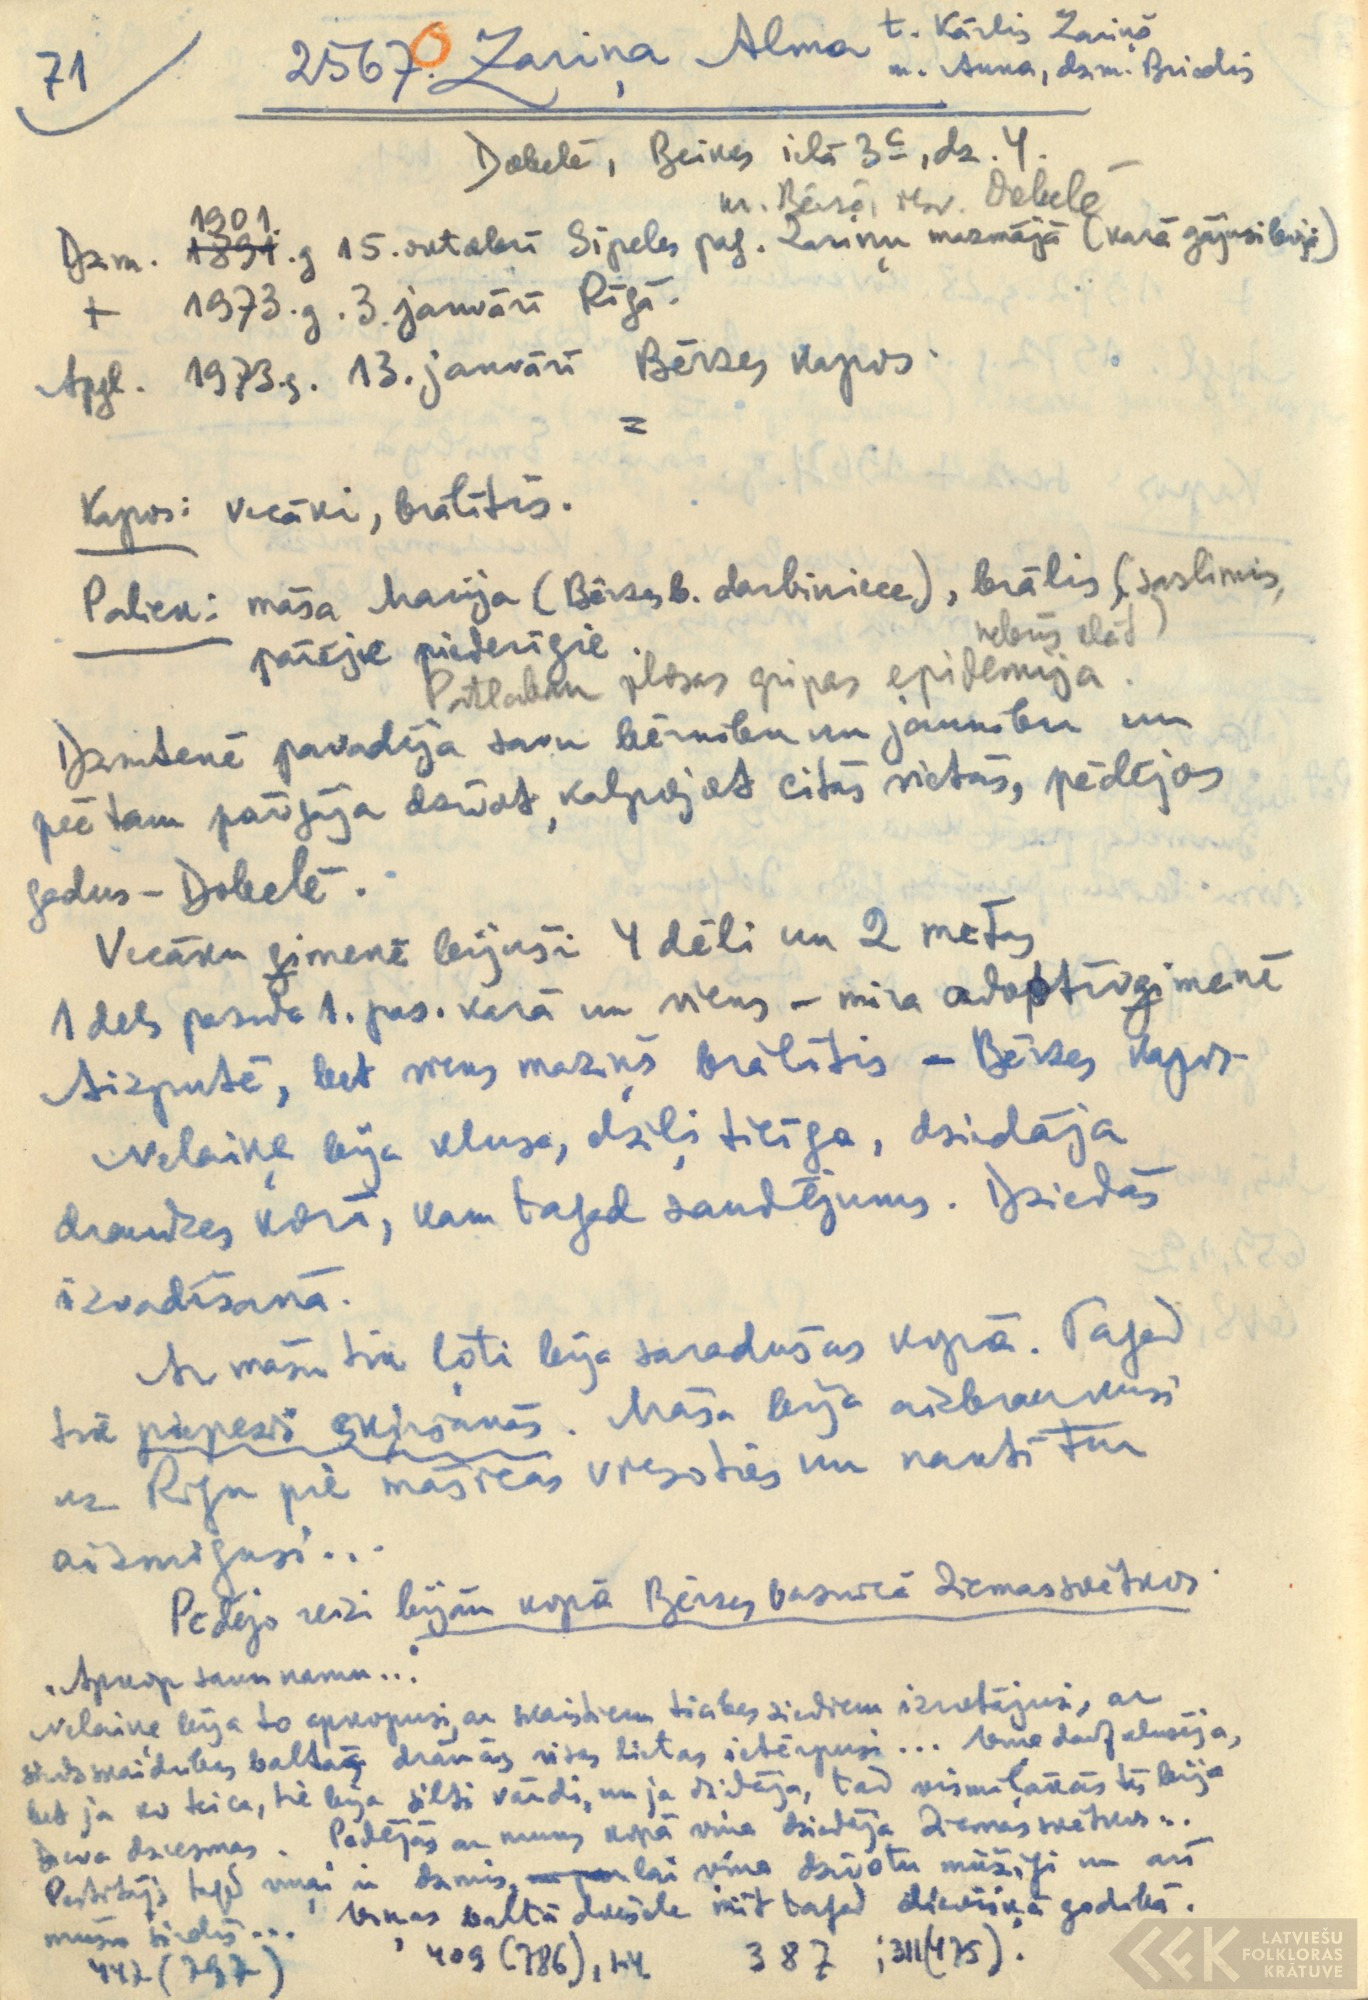 71
2567. Zariņa Alma
t. Kārlis Zariņš
m. Anna, dzim. Briedis
Dobelē, Beikes ielā 3c, dz. 4.
m. Bērzē, rsv. Dobelē
1901.
Dzim. 1891.g 15. oktobrī Sīpeles pag. Zariņu mazmājā (karā gājusi bojā)
+ 1973.g. 3. janvārī Rīgā.
Apgl. 1973.g. 13. janvārī Bērzes kapos.
=
Kapos: vecāki, brālītis.
Paliek: māsa Marija (Bērzes b. darbiniece), brālis (saslimis,
nebūs klāt)
pārējie piederīgie.
Patlaban plosās gripas epidemija.
Dzimtenē pavadīja savu bērnību un jaunību un
pēc tam pārgāja dzīvot, kalpojot citās vietās, pēdējos
gadus – Dobelē.
Vecāku ģimenē bijuši 4 dēli un 2 meitas
1 dēls pazuda 1. pas. karā un viens – mira adoptīvģimenē
Aizputē, bet viens maziņš brālītis – Bērzes kapos.
Nelaiķe bija klusa, dziļi ticīga, dziedāja
draudzes korī, kam tagad zaudējums. Dziedās
izvadīšanā.
Ar māsu tik ļoti bija saradušas kopā. Tagad
tik piepeši šķiršanās. Māsa bija aizbraukusi
uz Rīgu pie māsīcas viesoties un naktī tur
aizmigusi...
Pēdējo reizi bijām kopā Bērzes baznīcā Ziemassvētkos.
"Apkop savu namu..."
Nelaiķe bija to apkopusi, ar skaistiem ticības ziediem izrotājusi, ar
sirdsskaidrības baltās drānās visas lietas ietērpusi... Viņa daudz klusēja,
bet ja ko teica, tie bija silti vārdi, un ja dziedāja, tad vismīļākās tās bija
Dieva dziesmas. Pēdējās ar mums kopā viņa dziedāja Ziemassvētkos...
Pestītājs tagad viņai ir dzimis, lai viņa dzīvotu mūžīgi un arī
mūsu sirdīs... Viņas baltā dvēsele mīt tagad dievišķā godībā.
442 (797) 409 (786), 387 ; 311(475).
LATVIEŠU
FOLKLORAS
KRĀTUVE